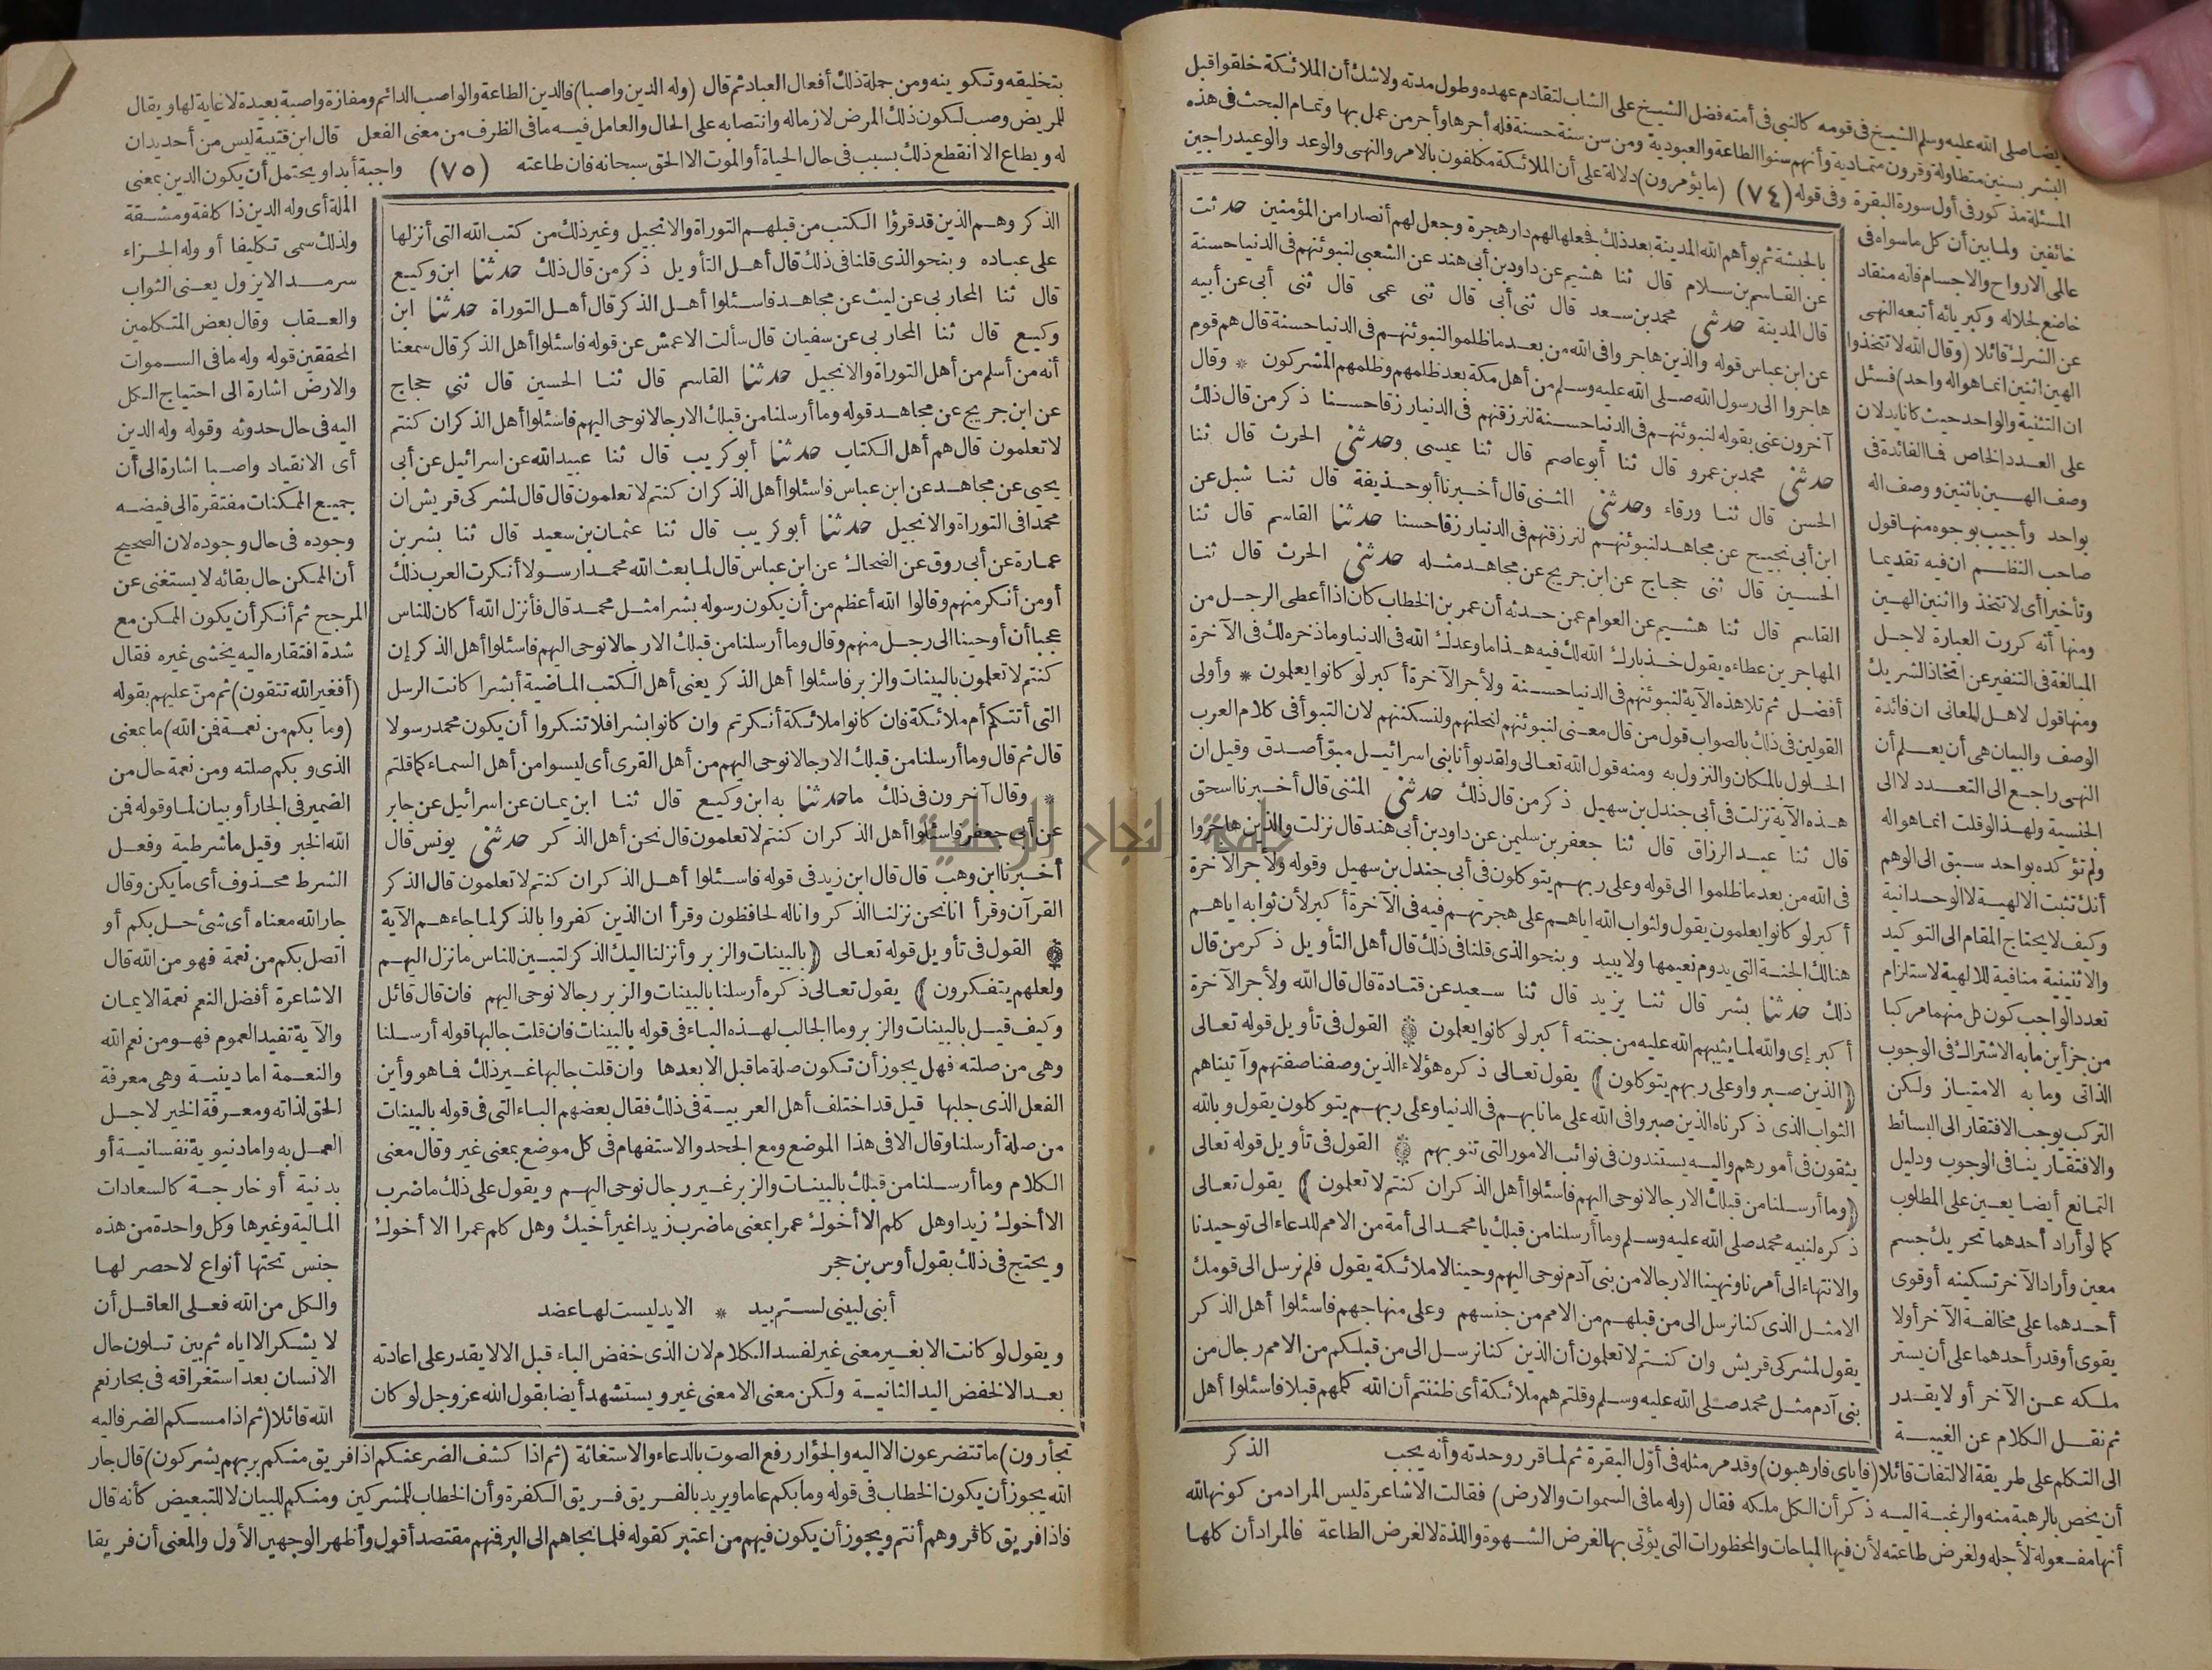 أيضا صلى الله عليه وسلم الشيخ فى قومه كالنبى فى أمته فضل الشيخ على الشاب لتقادم عهده وطول مدته ولا شك أن الملائكة خلقوا قبل
البشر بسنين متطاولة وقرون متمادية وأنهم سنوا الطاعة والعبودية ومن سن سنة حسنة فله أجرها وأجر من عمل بها وتمام البحث فى هذه
المسئلة مذكور فى أول سورة البقرة وفى قوله (٧٤) (ما يؤمرون) دلالة على أن الملائكة مكلفون بالامر والنهى والوعد والوعيد راجين
خائفين ولما بين أن كل ما سواه فى
عالمى الارواح والاجسام فانه منقاد
خاضع لجلاله وكبريائه أتبعه النهى
عن الشرك قائلا (وقال الله لا تتخذوا
الهين اثنين انما هو اله واحد) فسئل
ان التثنية والواحد حيث كانا يدلان
على العدد الخاص فما الفائدة فى
وصف الهين باثنين ووصف اله
بواحد وأجيب بوجوه منها قول
صاحب النظم ان فيه تقديما
وتأخيرا أى لا تتخذوا اثنين الهين
ومنها أنه كررت العبارة لاجل
المبالغة فى التنفير عن اتخاذ الشريك
ومنها قول لاهل المعانى ان فائدة
الوصف والبيان هى أن يعلم أن
النهى راجع الى التعدد لا الى
الجنسية ولهذا لو قلت انما هو اله
ولم تؤكده بواحد سبق الى الوهم
أنك تثبت الالهية لا الوحدانية
وكيف لا يحتاج المقام الى التوكيد
والاثنينية منافية للالهية لاستلزام
تعدد الواجب كون كل منهما مركبا
من جزأين ما به الاشتراك فى الوجوب
الذاتى وما به الامتياز ولكن
التركب يوجب الافتقار الى البسائط
والافتقار ينافى الوجوب ودليل
التمانع أيضا يعين على المطلوب
كما لو أراد أحدهما تحريك جسم
معين وأراد الآخر تسكينه أو قوى
أحدهما على مخالفة الآخر أولا
يقوى أو قدر أحدهما على أن يستر
ملكه عن الآخر أو لا يقدر
ثم نقل الكلام عن الغيبة
بالحبشة ثم بوأهم الله المدينة بعد ذلك فجعلها لهم دار هجرة وجعل لهم أنصارا من المؤمنين حدثت
عن القاسم بن سلام قال ثنا هشيم عن داود بن أبى هند عن الشعبى لنبوئنهم فى الدنيا حسنة
قال المدينة حدثنى محمد بن سعد قال ثنى أبى قال ثنى عمى قال ثنى أبى عن أبيه
عن ابن عباس قوله والذين هاجروا فى الله من بعد ما ظلموا لنبوئنهم فى الدنيا حسنة قال هم قوم
هاجروا الى رسول الله صلى الله عليه وسلم من أهل مكة بعد ظلمهم وظلمهم المشركون * وقال
آخرون عنى بقوله لنبوئنهم فى الدنيا حسنة لنرزقنهم فى الدنيا رزقا حسنا ذكر من قال ذلك
حدثنى محمد بن عمرو قال ثنا أبو عاصم قال ثنا عيسى وحدثنى الحرث قال ثنا
الحسن قال ثنا ورقاء وحدثنى المثنى قال أخبرنا أبو حذيفة قال ثنا شبل عن
ابن أبى نجيح عن مجاهد لنبوئنهم لنرزقنهم فى الدنيا رزقا حسنا حدثنا القاسم قال ثنا
الحسين قال ثنى حجاج عن ابن جريج عن مجاهد مثله حدثنى الحرث قال ثنا
القاسم قال ثنا هشيم عن العوام عمن حدثه أن عمر بن الخطاب كان اذا أعطى الرجل من
المهاجرين عطاءه يقول خذ بارك الله لك فيه هذا ما وعدك الله فى الدنيا وما ذخره لك فى الآخرة
أفضل ثم تلا هذه الآية لنبوئنهم فى الدنيا حسنة ولأجر الآخرة أكبر لو كانوا يعلمون * وأولى
القولين فى ذلك بالصواب قول من قال معنى لنبوئنهم لنحلنهم ولنسكننهم لان التبوأ فى كلام العرب
الحلول بالمكان والنزول به ومنه قول الله تعالى ولقد بوأنا بنى اسرائيل مبوّأ صدق وقيل ان
هذه الآية نزلت فى أبى جندل بن سهيل ذكر من قال ذلك حدثنى المثنى قال أخبرنا اسحق
قال ثنا عبد الرزاق قال ثنا جعفر بن سليمن عن داود بن أبى هند قال نزلت والذين هاجروا
فى الله من بعد ما ظلموا الى قوله وعلى ربهم يتوكلون فى أبى جندل بن سهيل وقوله ولأجر الآخرة
أكبر لو كانوا يعلمون يقول ولثواب الله اياهم على هجرتهم فيه فى الآخرة أكبر لأن ثوابه اياهم
هنالك الجنة التى يدوم نعيمها ولا يبيد وبنحو الذى قلنا فى ذلك قال أهل التأويل ذكر من قال
ذلك حدثنا بشر قال ثنا يزيد قال ثنا سعيد عن قتادة قال قال الله ولأجر الآخرة
أكبر إى والله لما يثيبهم الله عليه من جنته أكبر لو كانوا يعلمون ۞ القول فى تأويل قوله تعالى
(الذين صبروا وعلى ربهم يتوكلون) يقول تعالى ذكره هؤلاء الذين وصفنا صفتهم وآتيناهم
الثواب الذى ذكرناه الذين صبروا فى الله على ما نابهم فى الدنيا وعلى ربهم يتوكلون يقول وبالله
يثقون فى أمورهم واليه يستندون فى نوائب الامور التى تنوبهم ۞ القول فى تأويل قوله تعالى
(وما أرسلنا من قبلك الا رجالا نوحى اليهم فاسئلوا أهل الذكر ان كنتم لا تعلمون) يقول تعالى
ذكره لنبيه محمد صلى الله عليه وسلم وما أرسلنا من قبلك يا محمد الى أمة من الامم للدعاء الى توحيدنا
والانتهاء الى أمرنا ونهينا الا رجالا من بنى آدم نوحى اليهم وحينا لا ملائكة يقول فلم نرسل الى قومك
الا مثل الذى كنا نرسل الى من قبلهم من الامم من جنسهم وعلى منهاجهم فاسئلوا أهل الذكر
يقول لمشركى قريش وان كنتم لا تعلمون أن الذين كنا نرسل الى من قبلكم من الامم رجال من
بنى آدم مثل محمد صلى الله عليه وسلم وقلتم هم ملائكة أى ظننتم أن الله كلمهم قبلا فاسئلوا أهل
الذكر
الى التكلم على طريقة الالتفات قائلا (فاياى فارهبون) وقد مر مثله فى أوّل البقرة ثم لما قرر وحدته وأنه يجب
أن يخص بالرهبة منه والرغبة اليه ذكر أن الكل ملكه فقال (وله ما فى السموات والارض) فقالت الاشاعرة ليس المراد من كونها لله
أنها مفعولة لأجله ولغرض طاعته لأن فيها المباحات والمحظورات التى يؤتى بها لغرض الشهوة واللذة لا لغرض الطاعة فالمراد أن كلها
بتخليقه وتكوينه ومن جملة ذلك أفعال العباد ثم قال (وله الدين واصبا) فالدين الطاعة والواصب الدائم ومفازة واصبة بعيدة لا غاية لها ويقال
للمريض وصب لكون ذلك المرض لازما له وانتصابه على الحال والعامل فيه ما فى الظرف من معنى الفعل قال ابن قتيبة ليس من أحد يدان
له ويطاع الا انقطع ذلك بسبب فى حال الحياة أو الموت الا الحق سبحانه فان طاعته (٧٥) واجبة أبدا ويحتمل أن يكون الدين بمعنى
الذكر وهم الذين قد قرؤا الكتب من قبلهم التوراة والانجيل وغير ذلك من كتب الله التى أنزلها
على عباده وبنحو الذى قلنا فى ذلك قال أهل التأويل ذكر من قال ذلك حدثنا ابن وكيع
قال ثنا المحاربى عن ليث عن مجاهد فاسئلوا أهل الذكر قال أهل التوراة حدثنا ابن
وكيع قال ثنا المحاربى عن سفيان قال سألت الاعمش عن قوله فاسئلوا أهل الذكر قال سمعنا
أنه من أسلم من أهل التوراة والانجيل حدثنا القاسم قال ثنا الحسين قال ثنى حجاج
عن ابن جريج عن مجاهد قوله وما أرسلنا من قبلك الا رجالا نوحى اليهم فاسئلوا أهل الذكر ان كنتم
لا تعلمون قال هم أهل الكتاب حدثنا أبو كريب قال ثنا عبيد الله عن اسرائيل عن أبى
يحيى عن مجاهد عن ابن عباس فاسئلوا أهل الذكر ان كنتم لا تعلمون قال قال لمشركى قريش ان
محمدا فى التوراة والانجيل حدثنا أبو كريب قال ثنا عثمان بن سعيد قال ثنا بشر بن
عمارة عن أبى روق عن الضحاك عن ابن عباس قال لما بعث الله محمدا رسولا أنكرت العرب ذلك
أو من أنكر منهم وقالوا الله أعظم من أن يكون رسوله بشرا مثل محمد قال فأنزل الله أكان للناس
عجبا أن أوحينا الى رجل منهم وقال وما أرسلنا من قبلك الا رجالا نوحى اليهم فاسئلوا أهل الذكر إن
كنتم لا تعلمون بالبينات والزبر فاسئلوا أهل الذكر يعنى أهل الكتب الماضية أبشرا كانت الرسل
التى أتتكم أم ملائكة فان كانوا ملائكة أنكرتم وان كانوا بشرا فلا تنكروا أن يكون محمد رسولا
قال ثم قال وما أرسلنا من قبلك الا رجالا نوحى اليهم من أهل القرى أى ليسوا من أهل السماء كما قلتم
* وقال آخرون فى ذلك ما حدثنا به ابن وكيع قال ثنا ابن يمان عن اسرائيل عن جابر
عن أبى جعفر فاسئلوا أهل الذكر ان كنتم لا تعلمون قال نحن أهل الذكر حدثنى يونس قال
أخبرنا ابن وهب قال قال ابن زيد فى قوله فاسئلوا أهل الذكر ان كنتم لا تعلمون قال الذكر
القرآن وقرأ انا نحن نزلنا الذكر وانا له لحافظون وقرأ ان الذين كفروا بالذكر لما جاءهم الآية
۞ القول فى تأويل قوله تعالى (بالبينات والزبر وأنزلنا اليك الذكر لتبين للناس ما نزل اليهم
ولعلهم يتفكرون) يقول تعالى ذكره أرسلنا بالبينات والزبر رجالا نوحى اليهم فان قال قائل
وكيف قيل بالبينات والزبر وما الجالب لهذه الباء فى قوله بالبينات فان قلت جالبها قوله أرسلنا
وهى من صلته فهل يجوز أن تكون صلة ما قبل الا بعدها وان قلت جالبها غير ذلك فما هو وأين
الفعل الذى جلبها قيل قد اختلف أهل العربية فى ذلك فقال بعضهم الباء التى فى قوله بالبينات
من صلة أرسلنا وقال الا فى هذا الموضع ومع الجحد والاستفهام فى كل موضع بمعنى غير وقال معنى
الكلام وما أرسلنا من قبلك بالبينات والزبر غير رجال نوحى اليهم ويقول على ذلك ما ضرب
الا أخوك زيدا وهل كلم الا أخوك عمرا بمعنى ما ضرب زيدا غير أخيك وهل كلم عمرا الا أخوك
ويحتج فى ذلك بقول أوس بن حجر
أبنى لبينى لستم بيد * الا يد ليست لها عضد
ويقول لو كانت الا بغير معنى غير لفسد الكلام لان الذى خفض الباء قبل الا لا يقدر على اعادته
بعد الا لخفض اليد الثانية ولكن معنى الا معنى غير ويستشهد أيضا بقول الله عز وجل لو كان
الملة أى وله الدين ذا كلفة ومشقة
ولذلك سمى تكليفا أو وله الجزاء
سرمدا لا يزول يعنى الثواب
والعقاب وقال بعض المتكلمين
المحققين قوله وله ما فى السموات
والارض اشارة الى احتياج الكل
اليه فى حال حدوثه وقوله وله الدين
أى الانقياد واصبا اشارة الى أن
جميع الممكنات مفتقرة الى فيضه
وجوده فى حال وجوده لان الصحيح
أن الممكن حال بقائه لا يستغنى عن
المرجح ثم أنكر أن يكون الممكن مع
شدة افتقاره اليه يخشى غيره فقال
(أفغير الله تتقون) ثم منّ عليهم بقوله
(وما بكم من نعمة فمن الله) ما بمعنى
الذى وبكم صلته ومن نعمة حال من
الضمير فى الجار أو بيان لما وقوله فمن
الله الخبر وقيل ما شرطية وفعل
الشرط محذوف أى ما يكن وقال
جار الله معناه أى شئ حل بكم أو
اتصل بكم من نعمة فهو من الله قال
الاشاعرة أفضل النعم نعمة الايمان
والآية تفيد العموم فهو من نعم الله
والنعمة اما دينية وهى معرفة
الحق لذاته ومعرفة الخير لاجل
العمل به واما دنيوية نفسانية أو
بدنية أو خارجة كالسعادات
المالية وغيرها وكل واحدة من هذه
جنس تحتها أنواع لا حصر لها
والكل من الله فعلى العاقل أن
لا يشكر الا اياه ثم بين تلون حال
الانسان بعد استغراقه فى بحار نعم
الله قائلا (ثم اذا مسكم الضر فاليه
تجأرون) ما تتضرعون الا اليه والجؤار رفع الصوت بالدعاء والاستغاثة (ثم اذا كشف الضر عنكم اذا فريق منكم بربهم يشركون) قال جار
الله يجوز أن يكون الخطاب فى قوله وما بكم عاما ويريد بالفريق فريق الكفرة وأن الخطاب للمشركين ومنكم للبيان لا للتبعيض كأنه قال
فاذا فريق كافر وهم أنتم ويجوز أن يكون فيهم من اعتبر كقوله فلما نجاهم الى البر فمنهم مقتصد أقول وأظهر الوجهين الأول والمعنى أن فريقا
جامعة النجاح الوطنية